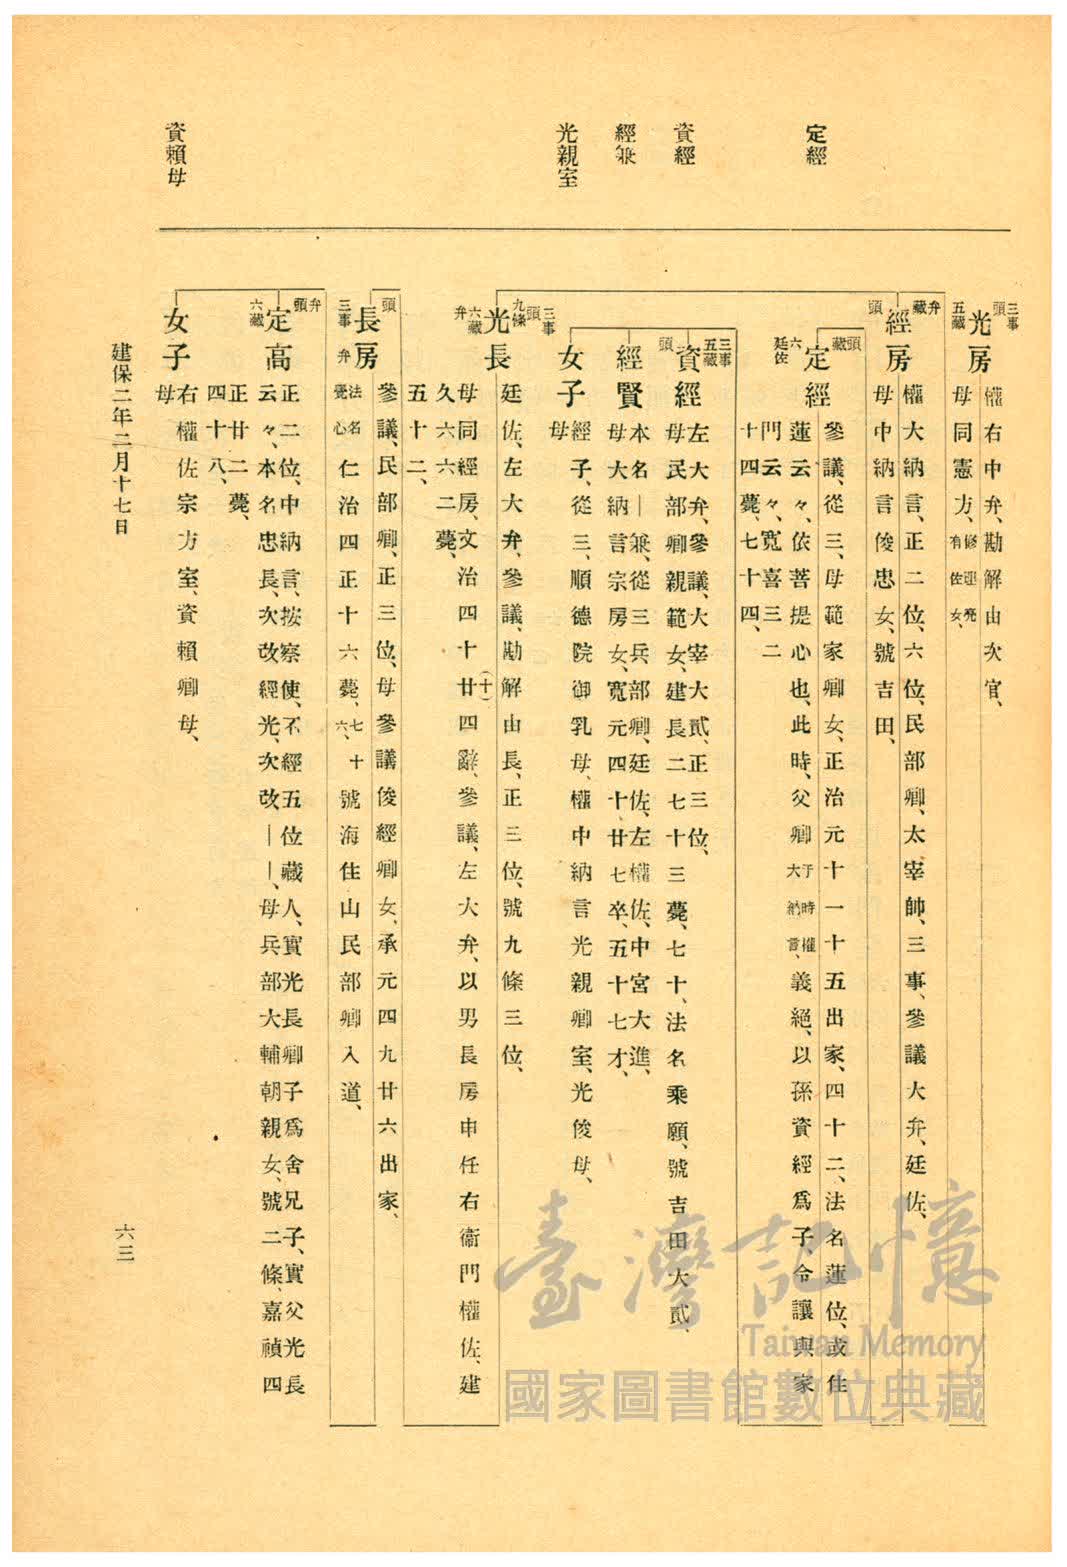 定經
資經
經兼
光親室
資賴母
三事
光房
五藏
權右中弁、勘解由次官、
母同憲方、修理亮有佐女、
弁藏
經房
頭
權大納言、正二位、六位、民部卿、太宰帥、三事、參議大弁、廷佐、
母中納言俊忠女、號吉田、
頭藏
定經
六
廷佐
參議、從三、母範家卿女、正治元十一十五出家、四十二、法名蓮位、或住
蓮云々、依菩提心也、此時、父卿于時權大納言、義絕、以孫資經爲子、令讓與家
門云々、寬喜三二
十四薨、七十四、
三事
五藏
資經
頭
左大弁、參議、大宰大貳、正三位、
母民部卿親範女、建長二七十三薨、七十、法名乘願、號吉田大貳、
經賢
本名｜兼、從三、兵部卿、廷佐、左權佐、中宮大進、
母大納言宗房女、寬元四十廿七卒、五十七才、
女子
經子、從三、順德院御乳母、權中納言光親卿室、光俊母、
母
三事
頭
九條
光長
六藏
弁
廷佐、左大弁、參議、勘解由長、正三位、號九條三位、
母同經房、文治四十(十)廿四辭、參議、左大弁、以男長房申任右衞門權佐、建
久六六二薨、
五十二、
頭
長房
三事
弁
參議、民部卿、正三位、母參議俊經卿女、承元四九廿六出家、
法名覺心仁治四正十六薨、七十六、號海住山民部卿入道、
弁
頭
定高
六藏
正二位、中納言、按察使、不經五位藏人、實光長卿子爲舍兄子、實父光長
云々、本名忠長、次改經光、次改｜｜、母兵部大輔朝親女、號二條、嘉禎四
正廿二薨、
四十八、
女子
右權佐宗方室、資賴卿母、
母
建保二年二月十七日
六三
臺灣記憶
Taiwan Memory
國家圖書館數位典藏